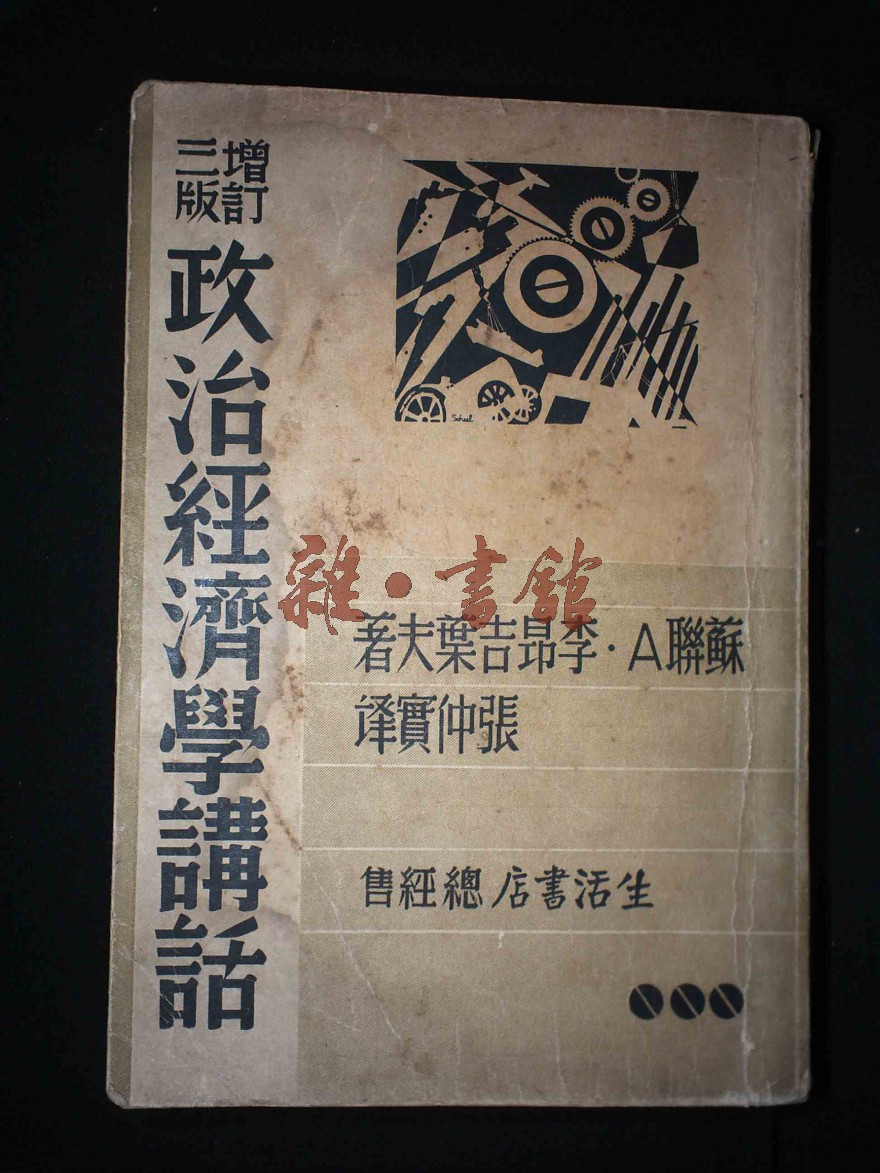 增訂
三版
政治經濟學講話
蘇聯A·李昂吉葉夫著
張仲實译
生活書店總經售
雜·書館